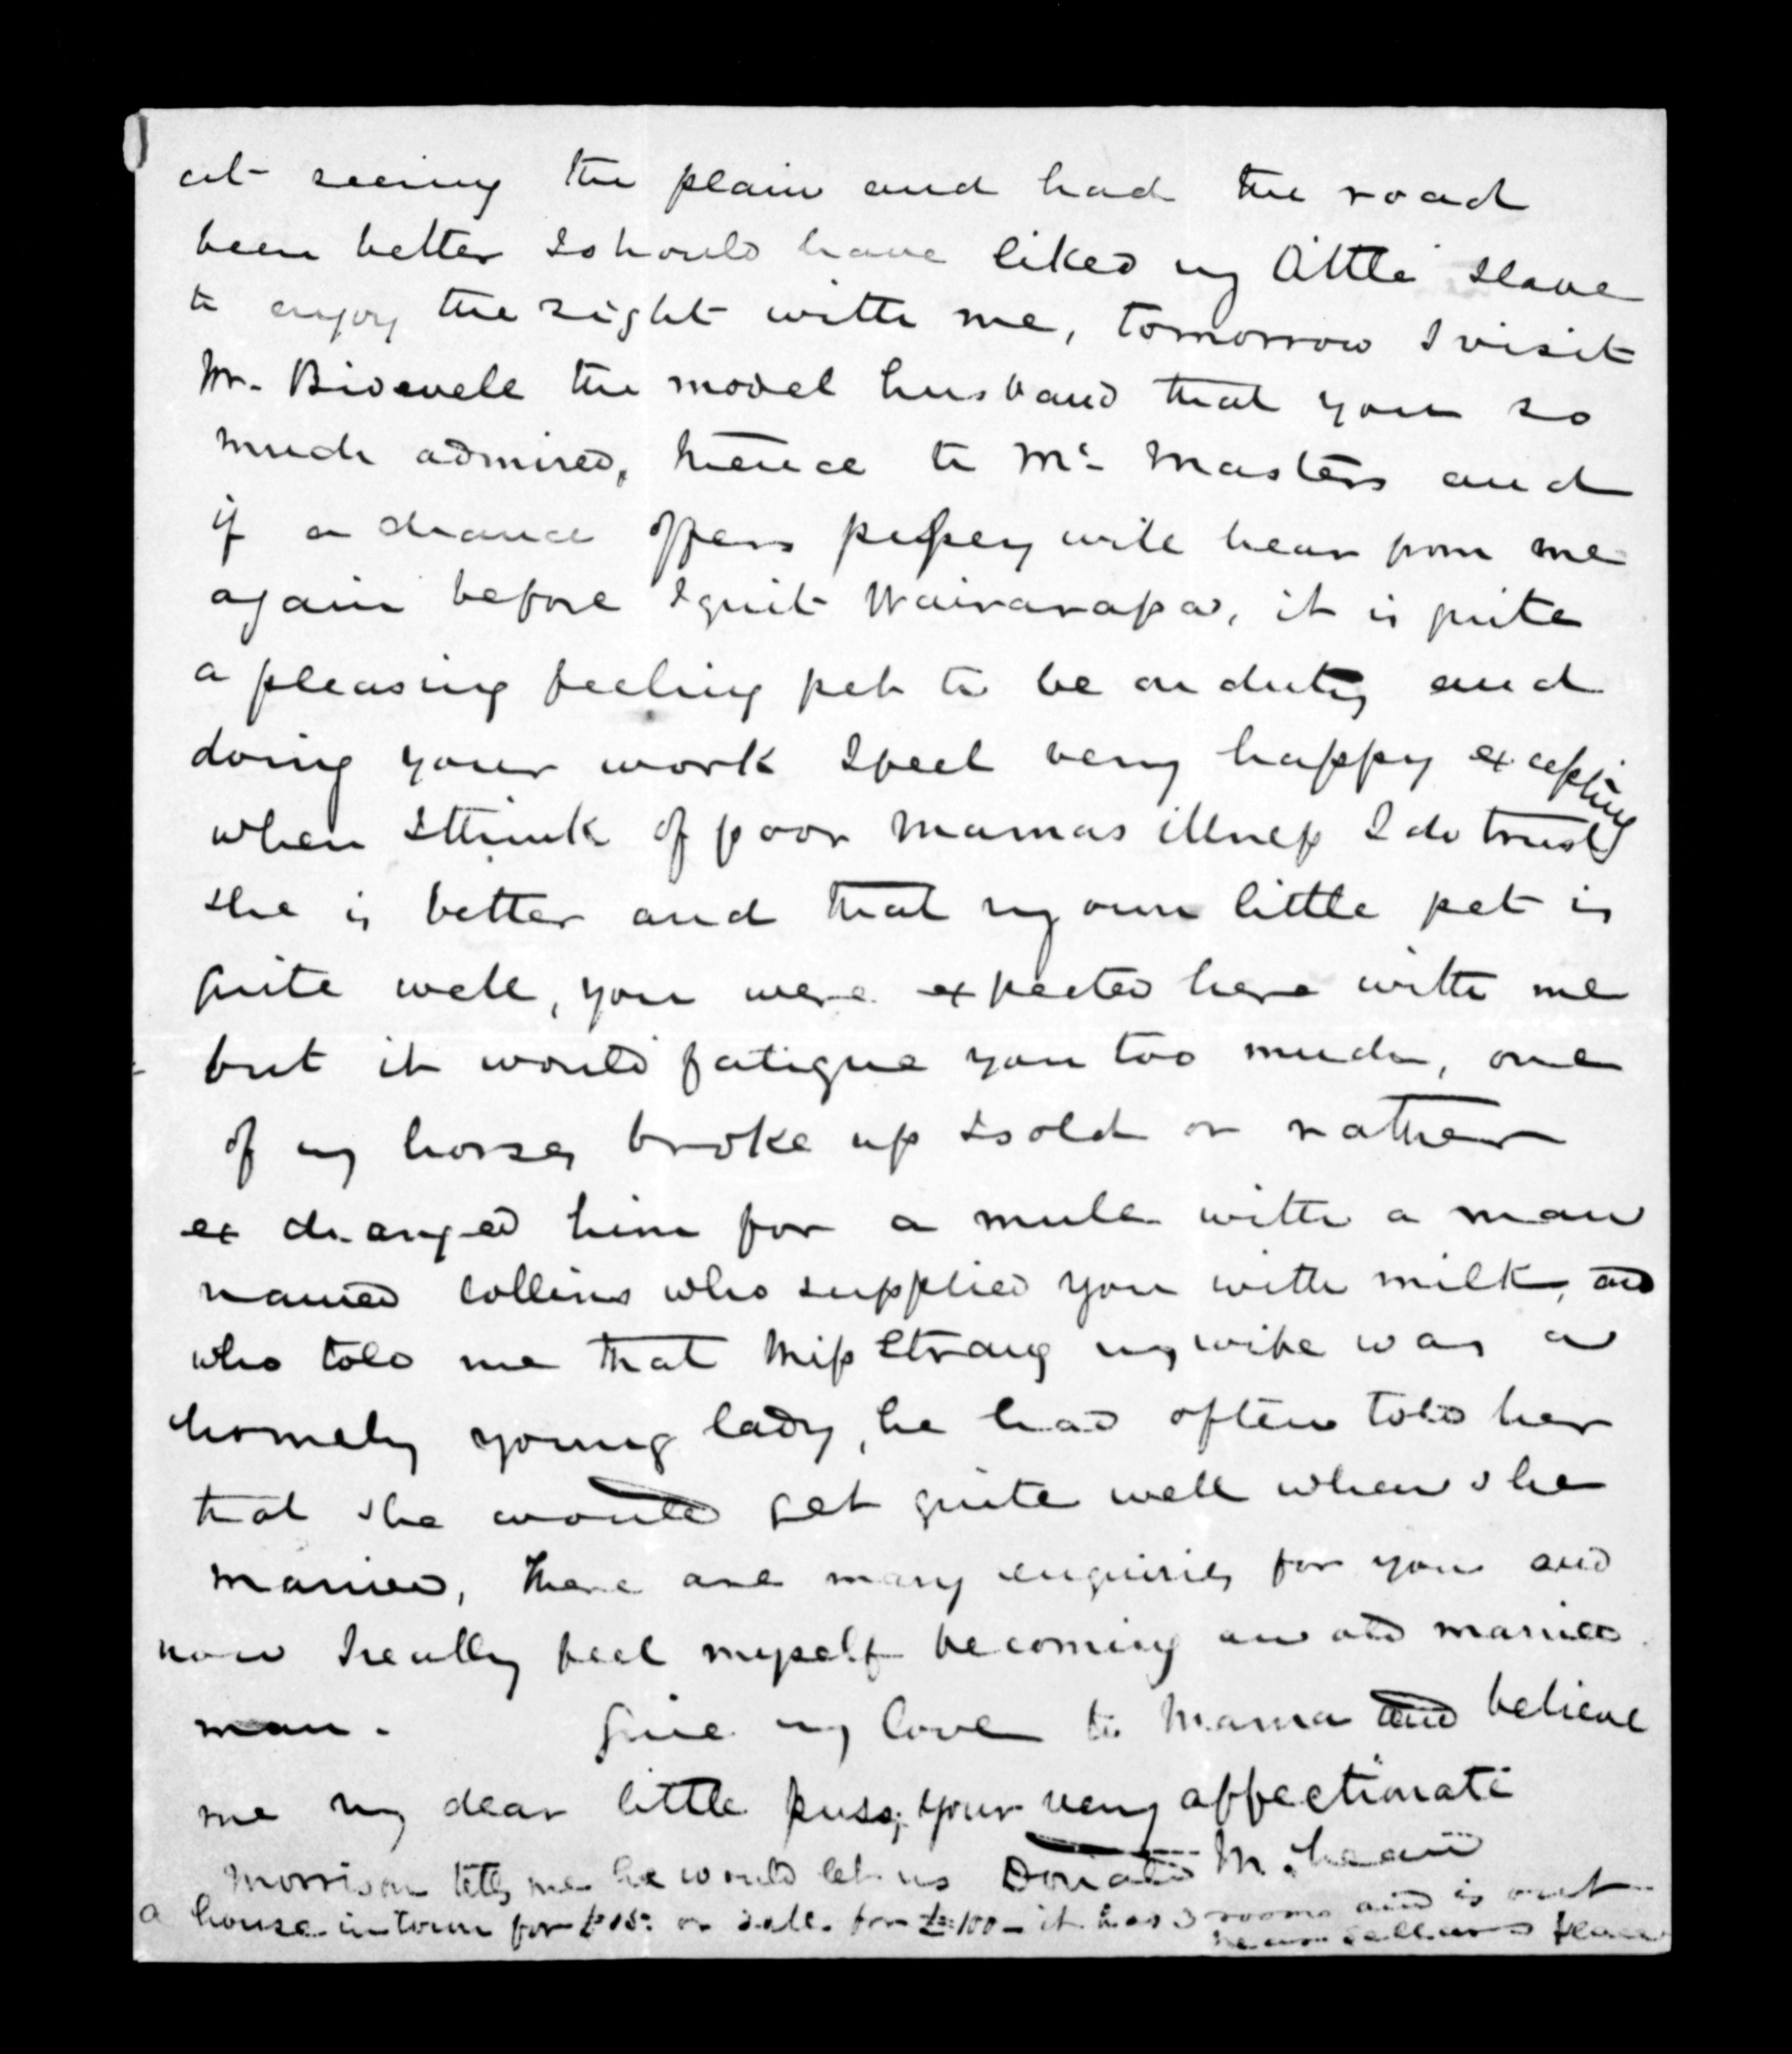 at seeing the plain and had the road
been better I should have liked my little slave
to enjoy the sight with me, tomorrow I visit
Mr. Bidwell the model husband that you so
much admired, hence to Mr. Masters and
if a chance offers pussey will hear from me
again before I quit Wairarapa, it is quite
a pleasing feeling pet to be on duty and
doing your work I feel very happy excepting
when I think of poor Mamas illness I do trust
she is better and that my own little pet is
quite well, you were expected here with me
but it would fatigue you too much, one
of my horses broke up I sold or rather
exchanged him for a mule with a man
named Collins who supplied you with milk, and
who told me that Miss Strang my wife was a
homely young lady, he had often told her
that she would get quite well when she
married, there are many enquiries for you and
now I really feel myself becoming an old married
man. Give my love to Mama and believe
me my dear little puss, your very affectionate
Donald McLean
Morrison tells me he would let us
a house in town for or sell for £100 - it has 3 rooms and is out
near place